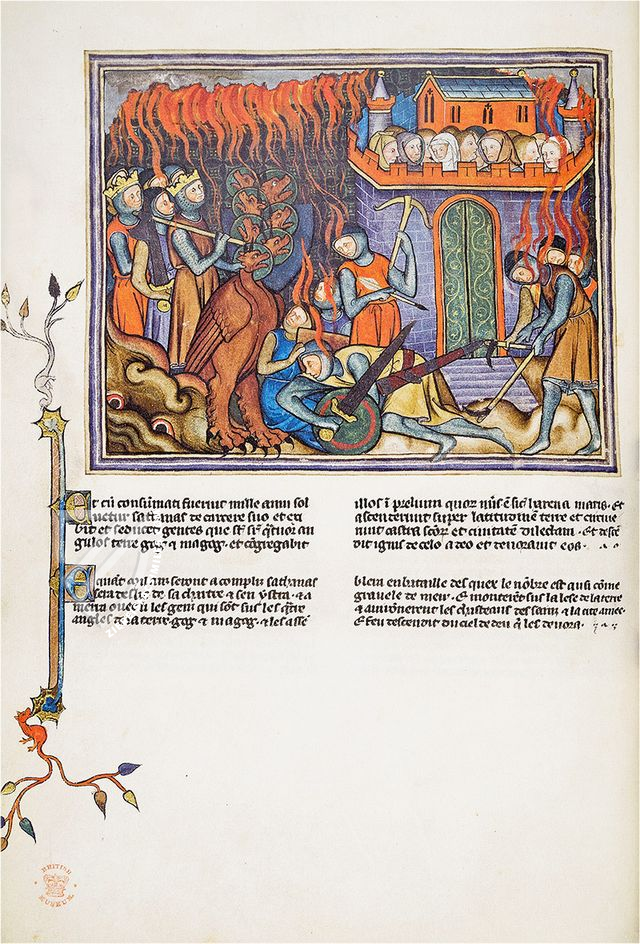 Et cū consūmati fuerīt mille anni sol
uetur sathanas de carcere suo et exi
bit et seducet gentes que sūt sr̄ q̄tuor an
gulos terre gog ⁊ magog · et cōgregabit
illos ī prelium quor nūs ē sīc harena maris · Et
ascenderunt super latitudinē terre et circue
runt castra scōr et ciuitatē dilectam · Et descē
dit ignis de celo a deo et deuorauit eos ·
E quāt mil anz seront a complis sathanas
sera desliez de sa chartre ⁊ en ystra · ⁊ a
menra ouec ū les genz qui sōt sus les q̄tre
angles de la terre · gog ⁊ magog · ⁊ les asse
blera en bataille des quex le nōbre est ausi cōme
grauele de mer · E monterēt sus la lese de la terre
⁊ auirōnerent les chasteaus des sainz ⁊ la cite amee ·
E feu descendit du ciel de deu q̄ les deuora ·
BRITISH
MUSEUM